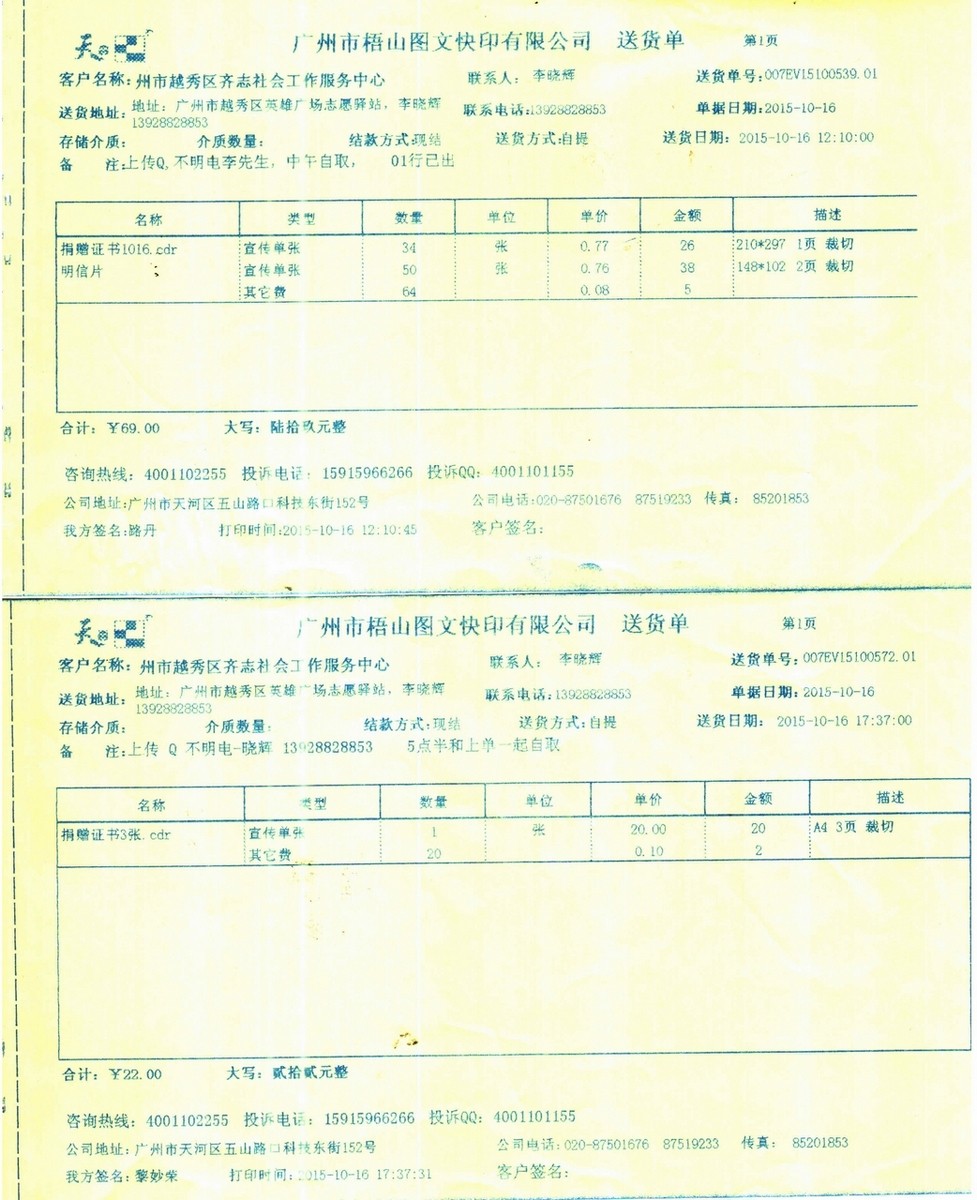 广州市梧山图文快印有限公司 送货单 第1页
客户名称: 州市越秀区齐志社会工作服务中心 联系人: 李晓辉 送货单号:007EV15100539.01
送货地址: 地址: 广州市越秀区英雄广场志愿驿站, 李晓辉 13928828853 联系电话:13928828853 单据日期:2015-10-16
存储介质: 介质数量: 结款方式:现结 送货方式:自提 送货日期: 2015-10-16 12:10:00
备 注:上传Q,不明电李先生, 中午自取, 01行已出
名称 类型 数量 单位 单价 金额 描述
捐赠证书1016.cdr 宣传单张 34 张 0.77 26 210*297 1页 裁切
明信片 宣传单张 50 张 0.76 38 148*102 2页 裁切
其它费 64 0.08 5
合计: ¥69.00 大写: 陆拾玖元整
咨询热线: 4001102255 投诉电话: 15915966266 投诉QQ: 4001101155
公司地址:广州市天河区五山路口科技东街152号 公司电话:020-87501676 87519233 传真: 85201853
我方签名:路丹 打印时间:2015-10-16 12:10:45 客户签名:
广州市梧山图文快印有限公司 送货单 第1页
客户名称: 州市越秀区齐志社会工作服务中心 联系人: 李晓辉 送货单号:007EV15100572.01
送货地址: 地址: 广州市越秀区英雄广场志愿驿站, 李晓辉 13928828853 联系电话:13928828853 单据日期:2015-10-16
存储介质: 介质数量: 结款方式:现结 送货方式:自提 送货日期: 2015-10-16 17:37:00
备 注:上传 Q 不明电-晓辉 13928828853 5点半和上单一起自取
名称 类型 数量 单位 单价 金额 描述
捐赠证书3张.cdr 宣传单张 1 张 20.00 20 A4 3页 裁切
其它费 20 0.10 2
合计: ¥22.00 大写: 贰拾贰元整
咨询热线: 4001102255 投诉电话: 15915966266 投诉QQ: 4001101155
公司地址: 广州市天河区五山路口科技东街152号 公司电话:020-87501676 87519233 传真: 85201853
我方签名: 黎妙荣 打印时间:2015-10-16 17:37:31 客户签名: